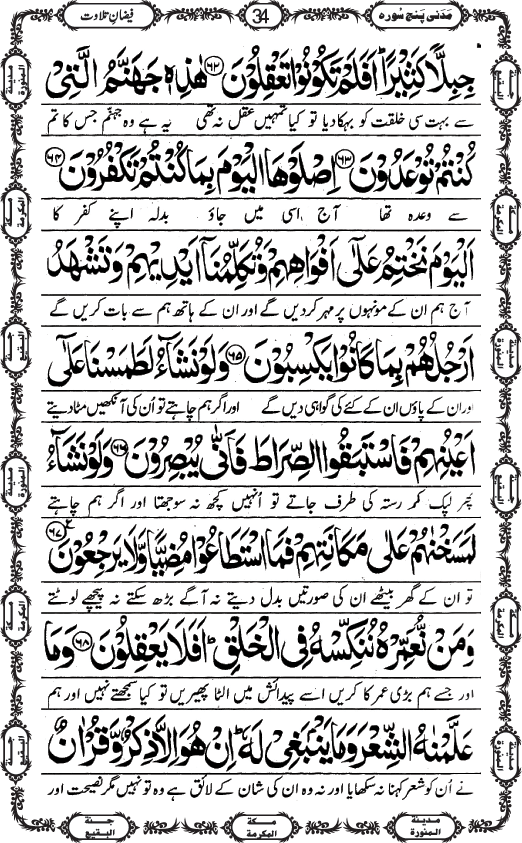 مَدَنی پنج سُورہ
34
فیضانِ تلاوت
جِبِلًّا كَثِیْرًا ؕ اَفَلَمْ تَكُوْنُوْا تَعْقِلُوْنَ ﴿۶۲﴾ هٰذِهٖ جَهَنَّمُ الَّتِیْ
سے بہت سی خلقت کو بہکا دیا تو کیا تمہیں عقل نہ تھی یہ ہے وہ جہنّم جس کا تم
كُنْتُمْ تُوْعَدُوْنَ ﴿۶۳﴾ اِصْلَوْهَا الْیَوْمَ بِمَا كُنْتُمْ تَكْفُرُوْنَ ﴿۶۴﴾
سے وعدہ تھا آج اسی میں جاؤ بدلہ اپنے کفر کا
اَلْیَوْمَ نَخْتِمُ عَلٰۤی اَفْوَاهِهِمْ وَ تُكَلِّمُنَاۤ اَیْدِیْهِمْ وَ تَشْهَدُ
آج ہم ان کے مونہوں پر مہر کردیں گے اور ان کے ہاتھ ہم سے بات کریں گے
اَرْجُلُهُمْ بِمَا كَانُوْا یَكْسِبُوْنَ ﴿۶۵﴾ وَ لَوْ نَشَآءُ لَطَمَسْنَا عَلٰۤی
اور ان کے پاؤں ان کے کئے کی گواہی دیں گے اور اگر ہم چاہتے تو اُن کی آنکھیں مٹا دیتے
اَعْیُنِهِمْ فَاسْتَبَقُوا الصِّرَاطَ فَاَنّٰی یُبْصِرُوْنَ ﴿۶۶﴾ وَ لَوْ نَشَآءُ
پھر لپک کر رستہ کی طرف جاتے تو اُنہیں کچھ نہ سوجھتا اور اگر ہم چاہتے
لَمَسَخْنٰهُمْ عَلٰی مَكَانَتِهِمْ فَمَا اسْتَطَاعُوْا مُضِیًّا وَّ لَا یَرْجِعُوْنَ ﴿۶۷﴾
تو ان کے گھر بیٹھے ان کی صورتیں بدل دیتے نہ آگے بڑھ سکتے نہ پیچھے لوٹتے
وَ مَنْ نُّعَمِّرْهُ نُنَكِّسْهُ فِی الْخَلْقِ ؕ اَفَلَا یَعْقِلُوْنَ ﴿۶۸﴾ وَ مَا
اور جسے ہم بڑی عمر کا کریں اسے پیدائش میں الٹا پھیریں تو کیا سمجھتے نہیں اور ہم
عَلَّمْنٰهُ الشِّعْرَ وَ مَا یَنْۢبَغِیْ لَهٗ ؕ اِنْ هُوَ اِلَّا ذِكْرٌ وَّ قُرْاٰنٌ
نے اُن کو شعر کہنا نہ سکھایا اور نہ وہ ان کی شان کے لائق ہے وہ تو نہیں مگر نصیحت اور
جنۃ البقیع
مکۃ المکرمۃ
مدینۃ المنورۃ
جنۃ البقیع
مکۃ المکرمۃ
مدینۃ المنورۃ
مدینۃ المنورۃ
مکۃ المکرمۃ
جنۃ البقیع
مدینۃ المنورۃ
مکۃ المکرمۃ
جنۃ البقیع
مدینۃ المنورۃ
مکۃ المکرمۃ
جنۃ البقیع